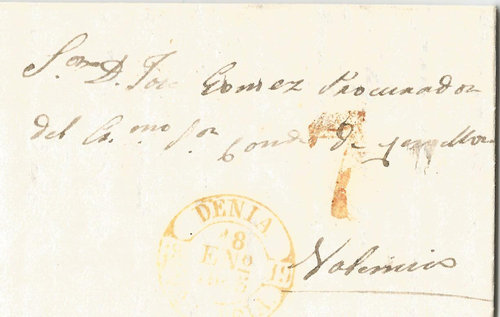 Sor D. Jose Gomez Procurador
del Exmo Sor Conde de
7
DENIA
18
ENo
19
Valencia